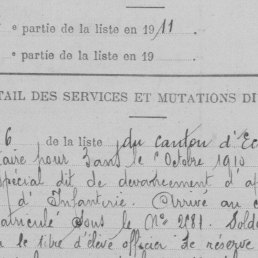 e partie de la liste en 1911
e partie de la liste en 19
TAIL DES SERVICES ET MUTATIONS DI
6 de la liste du canton d'Ec
taire pour 3 ans le Octobre 1910
spécial dit de devancement d'a
d'Infanterie. Arrivé au c
atriculé sous le N° 2981. Solda
le titre d'élève officier de réserve